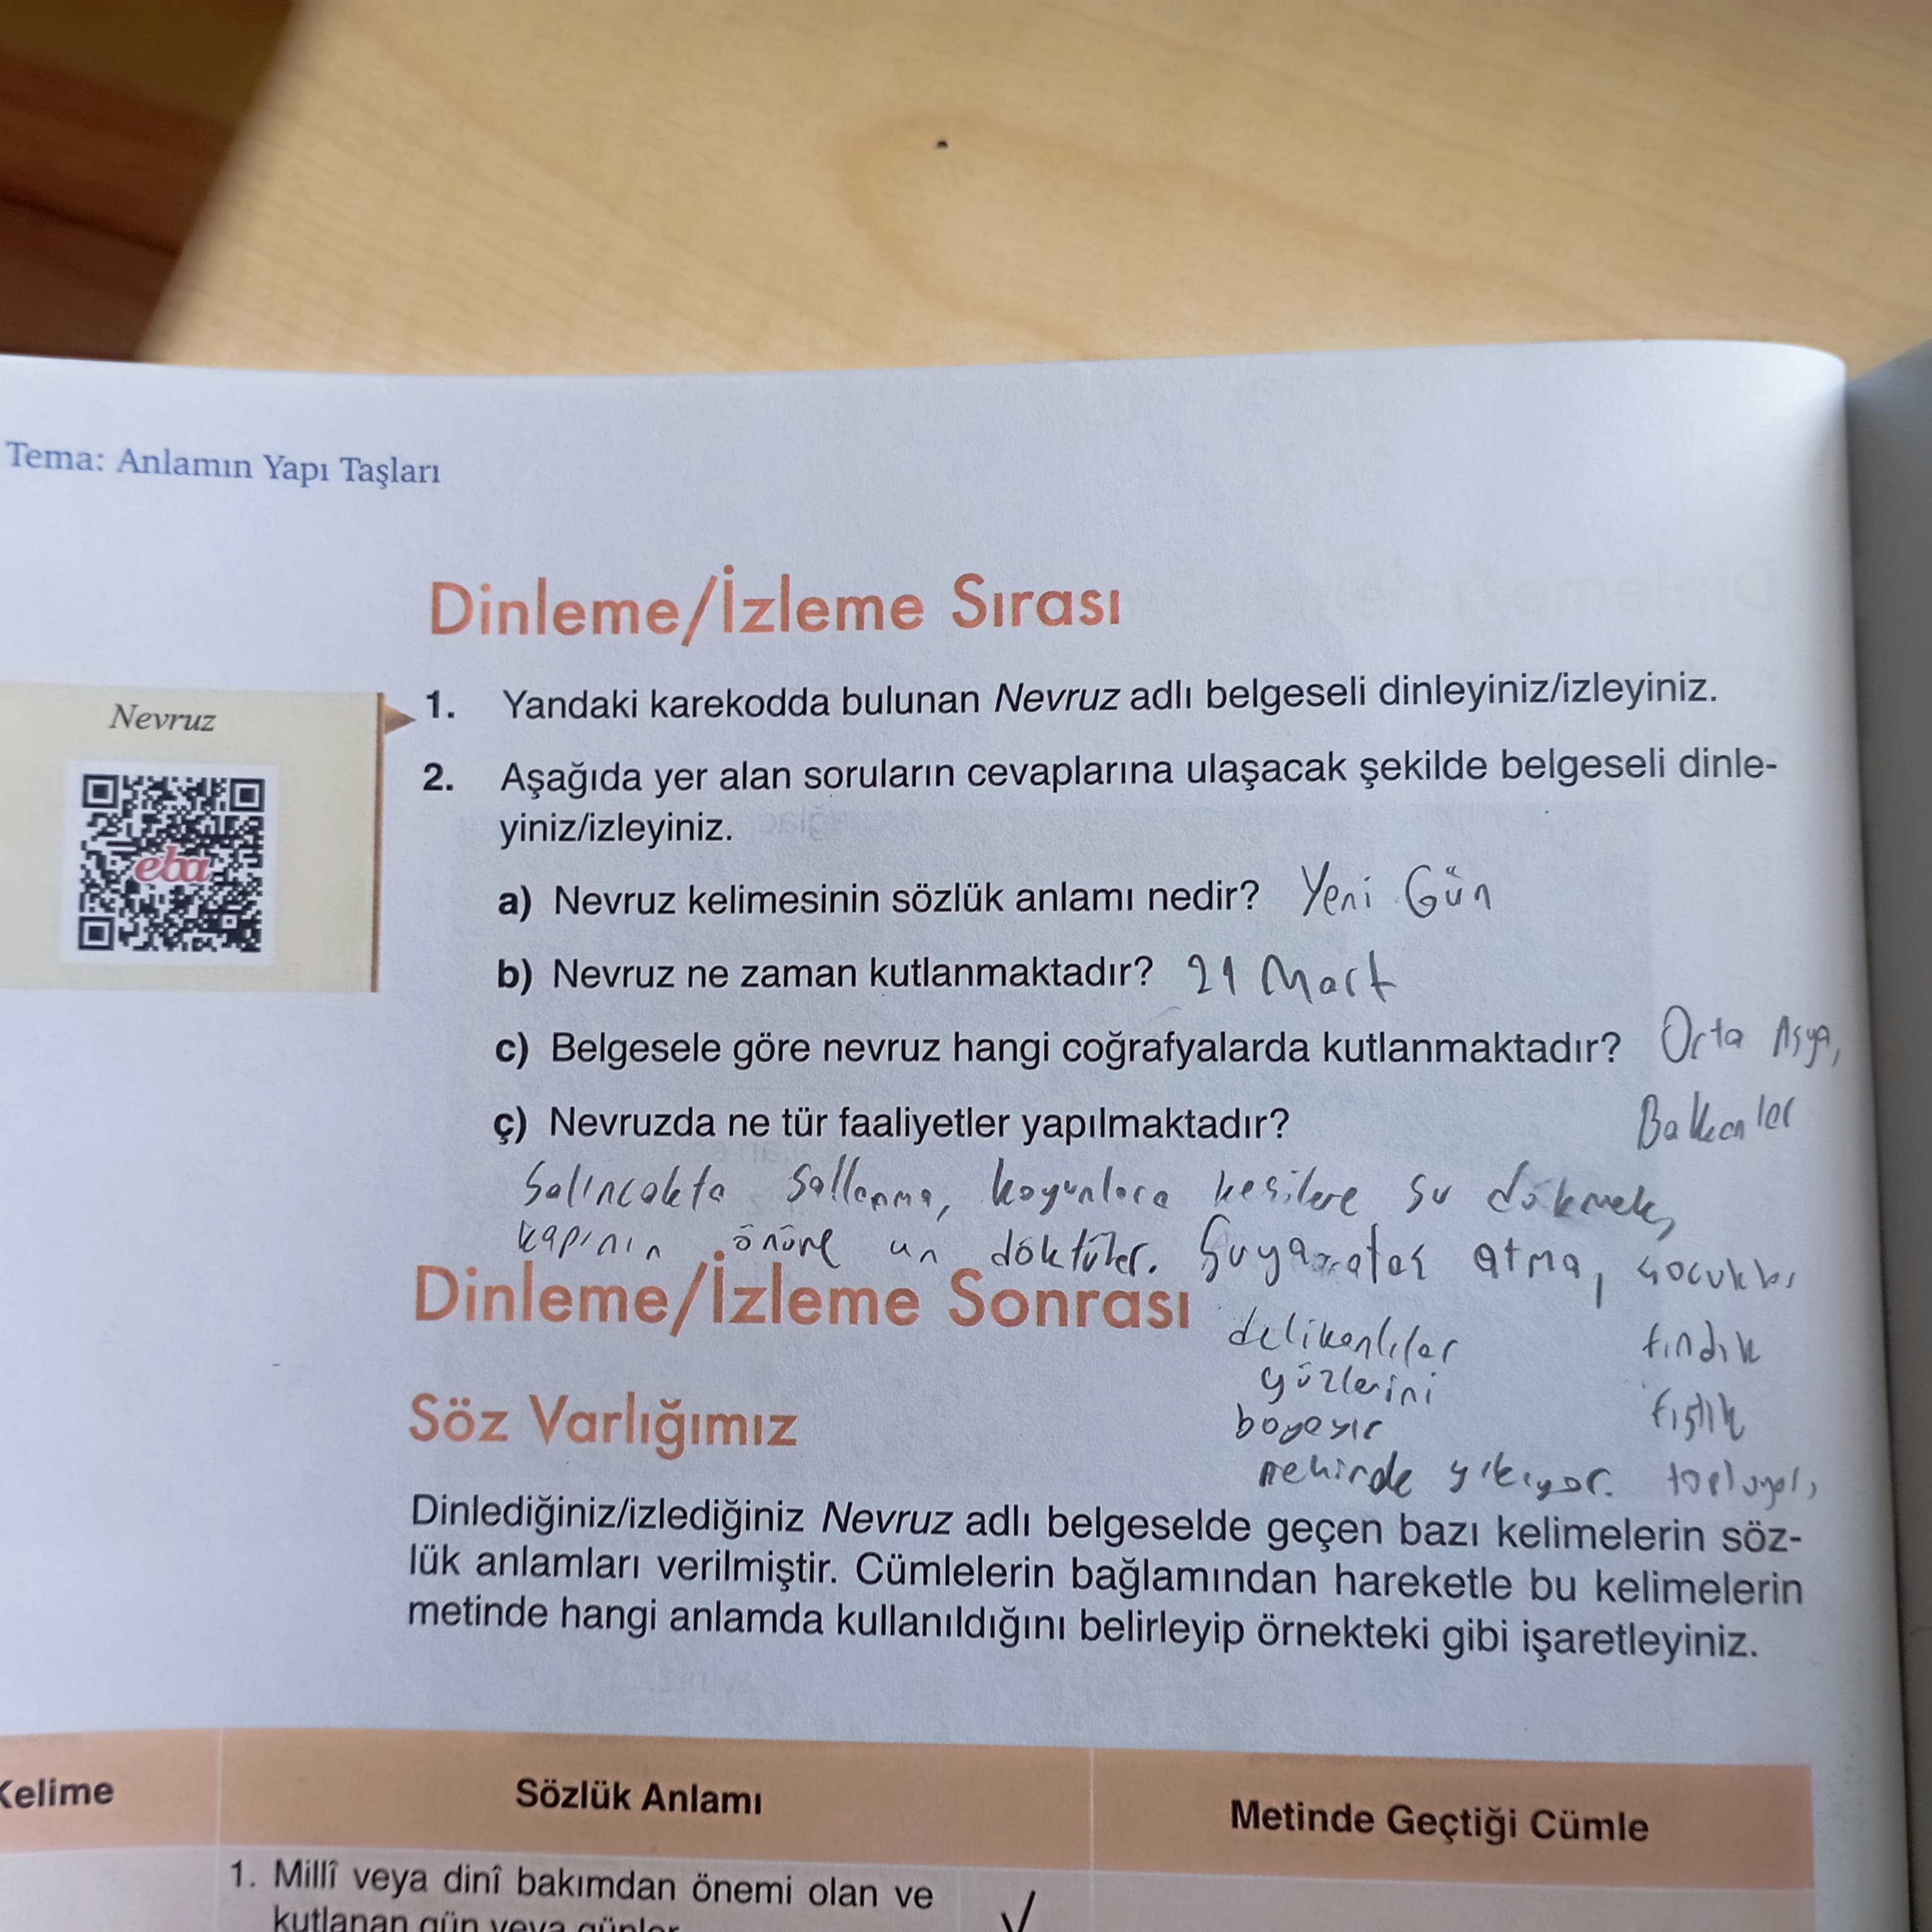 Tema: Anlamın Yapı Taşları
Dinleme/İzleme Sırası
Nevruz
eba
1. Yandaki karekodda bulunan Nevruz adlı belgeseli dinleyiniz/izleyiniz.
2. Aşağıda yer alan soruların cevaplarına ulaşacak şekilde belgeseli dinle-
yiniz/izleyiniz.
a) Nevruz kelimesinin sözlük anlamı nedir? Yeni Gün
b) Nevruz ne zaman kutlanmaktadır? 21 Mart
c) Belgesele göre nevruz hangi coğrafyalarda kutlanmaktadır? Orta Asya,
Balkanlar
ç) Nevruzda ne tür faaliyetler yapılmaktadır?
Salıncakta sallanma, koyunlara keçilere su dökmek,
kapının önüne un döktüler. atma, çocuklar
Dinleme/İzleme Sonrası
delikanlılar fındık
yüzlerini
boyayır fıstık
Söz Varlığımız
nehirde yıkıyor. topluyor,
Dinlediğiniz/izlediğiniz Nevruz adlı belgeselde geçen bazı kelimelerin söz-
lük anlamları verilmiştir. Cümlelerin bağlamından hareketle bu kelimelerin
metinde hangi anlamda kullanıldığını belirleyip örnekteki gibi işaretleyiniz.
Kelime Sözlük Anlamı Metinde Geçtiği Cümle
1. Millî veya dinî bakımdan önemi olan ve ✓
kutlanan gün veya günler